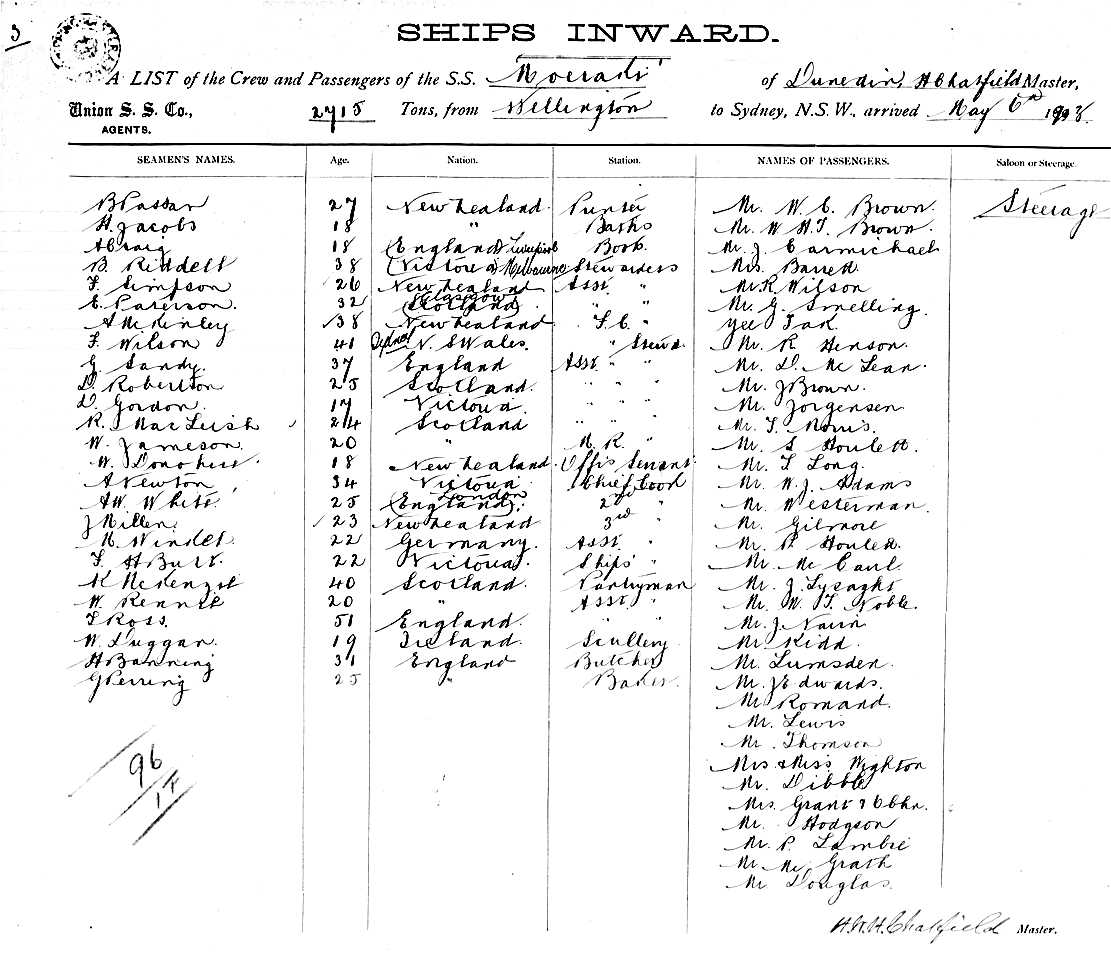 3
SHIPS INWARD.
A LIST of the Crew and Passengers of the S.S. Moeraki of Dunedin, H Chatfield Master,
Union S. S. Co., 2715 Tons, from Wellington to Sydney, N.S.W., arrived May 6th 1908.
AGENTS.
SEAMEN'S NAMES. Age. Nation. Station. NAMES OF PASSENGERS. Saloon or Steerage.
B Passar 27 New Zealand. Printer Mr. W. C. Brown. Steerage
H. Jacobs 18 " Barks Mr. W. H. T. Brown.
A Craig 18 (England) Liverpool Book. Mr. J. Carmichael
B. Riddell 38 (Victoria) Melbourne Stewardess Mrs. Barrett
F. Simpson 26 New Zealand Asst. " Mr. R. Wilson
E. Paterson. 32 (Scotland) Glasgow " " Mr. G. Smelling.
A McKinley 38 New Zealand F.C. " Yee Tak.
F. Wilson 41 Sydney N. S Wales. " Stewd. Mr. R. Henson.
G. Sandy. 37 England Asst. " " Mr. D. Mc Lean.
D. Robertson 25 Scotland. " " " Mr. J Brown.
D. Gordon. 17 Victoria. " " " Mr. Jorgensen
R. J MacLeish 24 Scotland " " " Mr. T. Norris.
W. Jameson. 20 " M. R " Mr. S Houlett.
W. Donohue. 18 New Zealand. Offis Servant Mr. T Long.
A Newton 34 Victoria. Chief Cook Mr. W. J. Adams
A W. White. 25 (England) London 2nd " Mr. Westerman.
J Millen. 23 New Zealand 3rd " Mr. Gilmore
M. Windel. 22 Germany. Asst. " Mr. P. Houlett.
F. H Burt. 22 Victoria. Ships' " Mr. Mc Caul.
K McKenzie 40 Scotland. Pantryman Mr. J. Lysaght
W. Rennie 20 " Asst. " Mr. W. T. Noble.
T Ross. 51 England. " " Mr. J. Nairn
W. Duggan. 19 Ireland. Scullery. Mr. Kidd.
H Banning 31 England Butcher Mr. Lumsden.
G Perring 25 " Baker. Mr. J Edwards.
Mr. Romand.
Mr. Lewis
Mr. Thomson
Mrs & Miss Wighton
Mr. Dibble
Mrs. Grant & Chn.
Mr. Hodgson
Mr. P. Lambie
Mr. Mc Grath
Mr Douglas.
96
14
H. W. H. Chatfield Master.